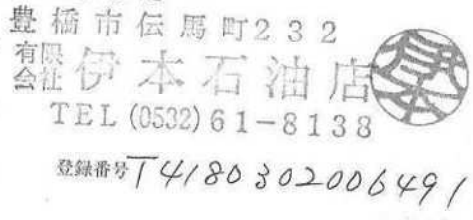 豊橋市伝馬町232
有限会社 伊本石油店
TEL (0532) 61-8138
伊本
登録番号 T4180302006491